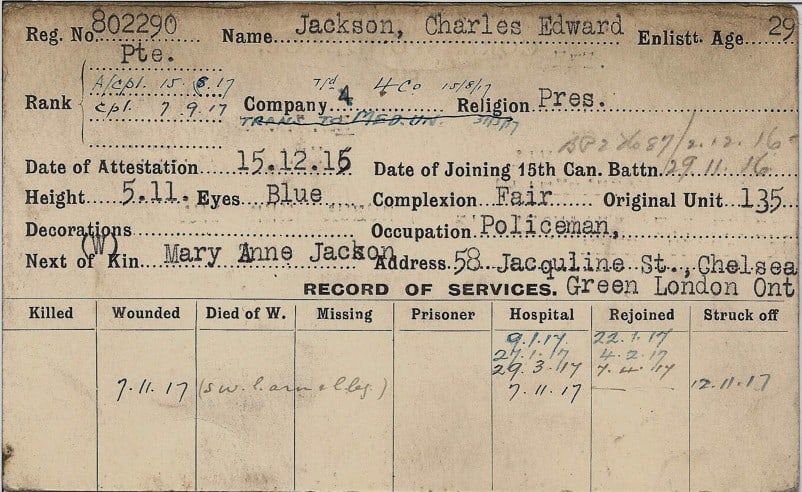 Reg. No. 802290 Name Jackson, Charles Edward Enlistt. Age 29
Pte.
A/cpl. 15 6.17 Tfd 4 Co 15/8/17
Rank cpl. 7 9.17 Company 4 Religion Pres.
TRANS TO MED. UN.
2.12.16
Date of Attestation 15.12.15 Date of Joining 15th Can. Battn. 29.11.16
Height 5.11. Eyes Blue Complexion Fair Original Unit 135
Decorations Occupation Policeman,
(W)
Next of Kin Mary Anne Jackson Address 58 Jacquline St., Chelsea
RECORD OF SERVICES. Green London Ont
Killed Wounded Died of W. Missing Prisoner Hospital Rejoined Struck off
9.1.17. 22.1.17
27.1.17 4.2.17
29.3.17 7.4.17
7.11.17 (s w. l. arm & l leg.) 7.11.17 — 12.11.17